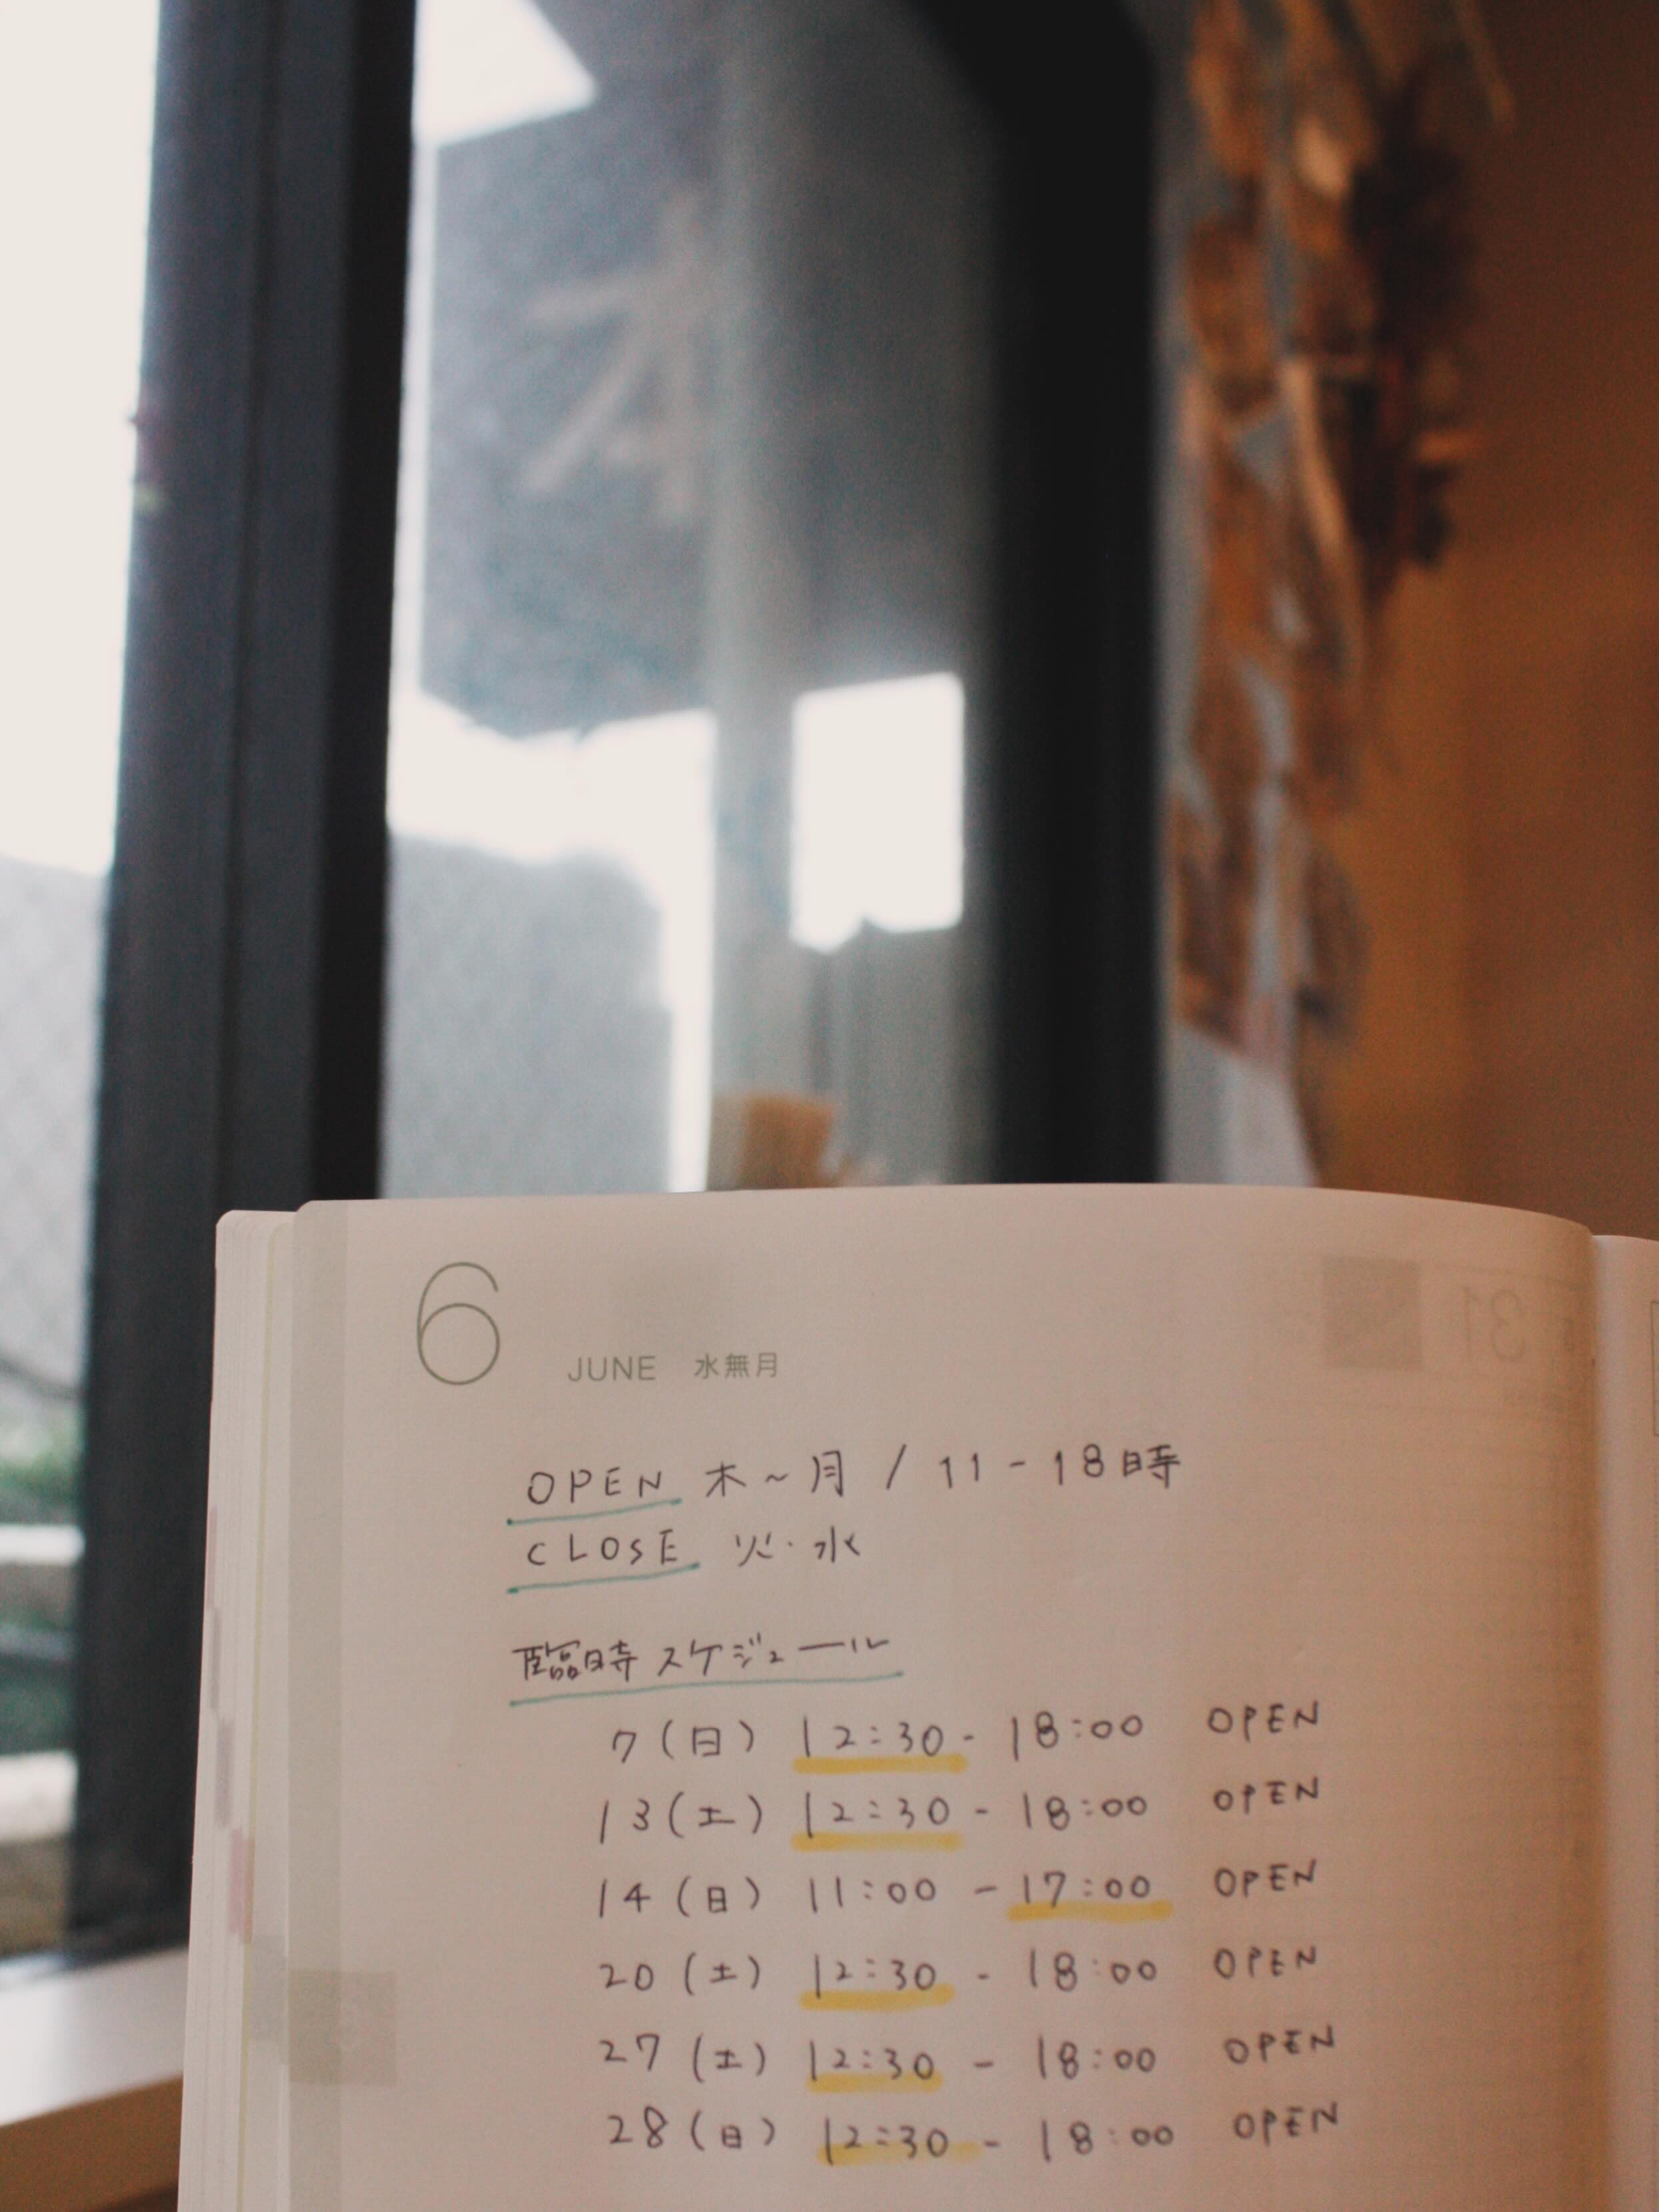 6
JUNE 水無月
OPEN 木~月 / 11-18時
CLOSE 火・水
臨時スケジュール
7(日) 12:30 - 18:00 OPEN
13(土) 12:30 - 18:00 OPEN
14(日) 11:00 - 17:00 OPEN
20(土) 12:30 - 18:00 OPEN
27(土) 12:30 - 18:00 OPEN
28(日) 12:30 - 18:00 OPEN
31